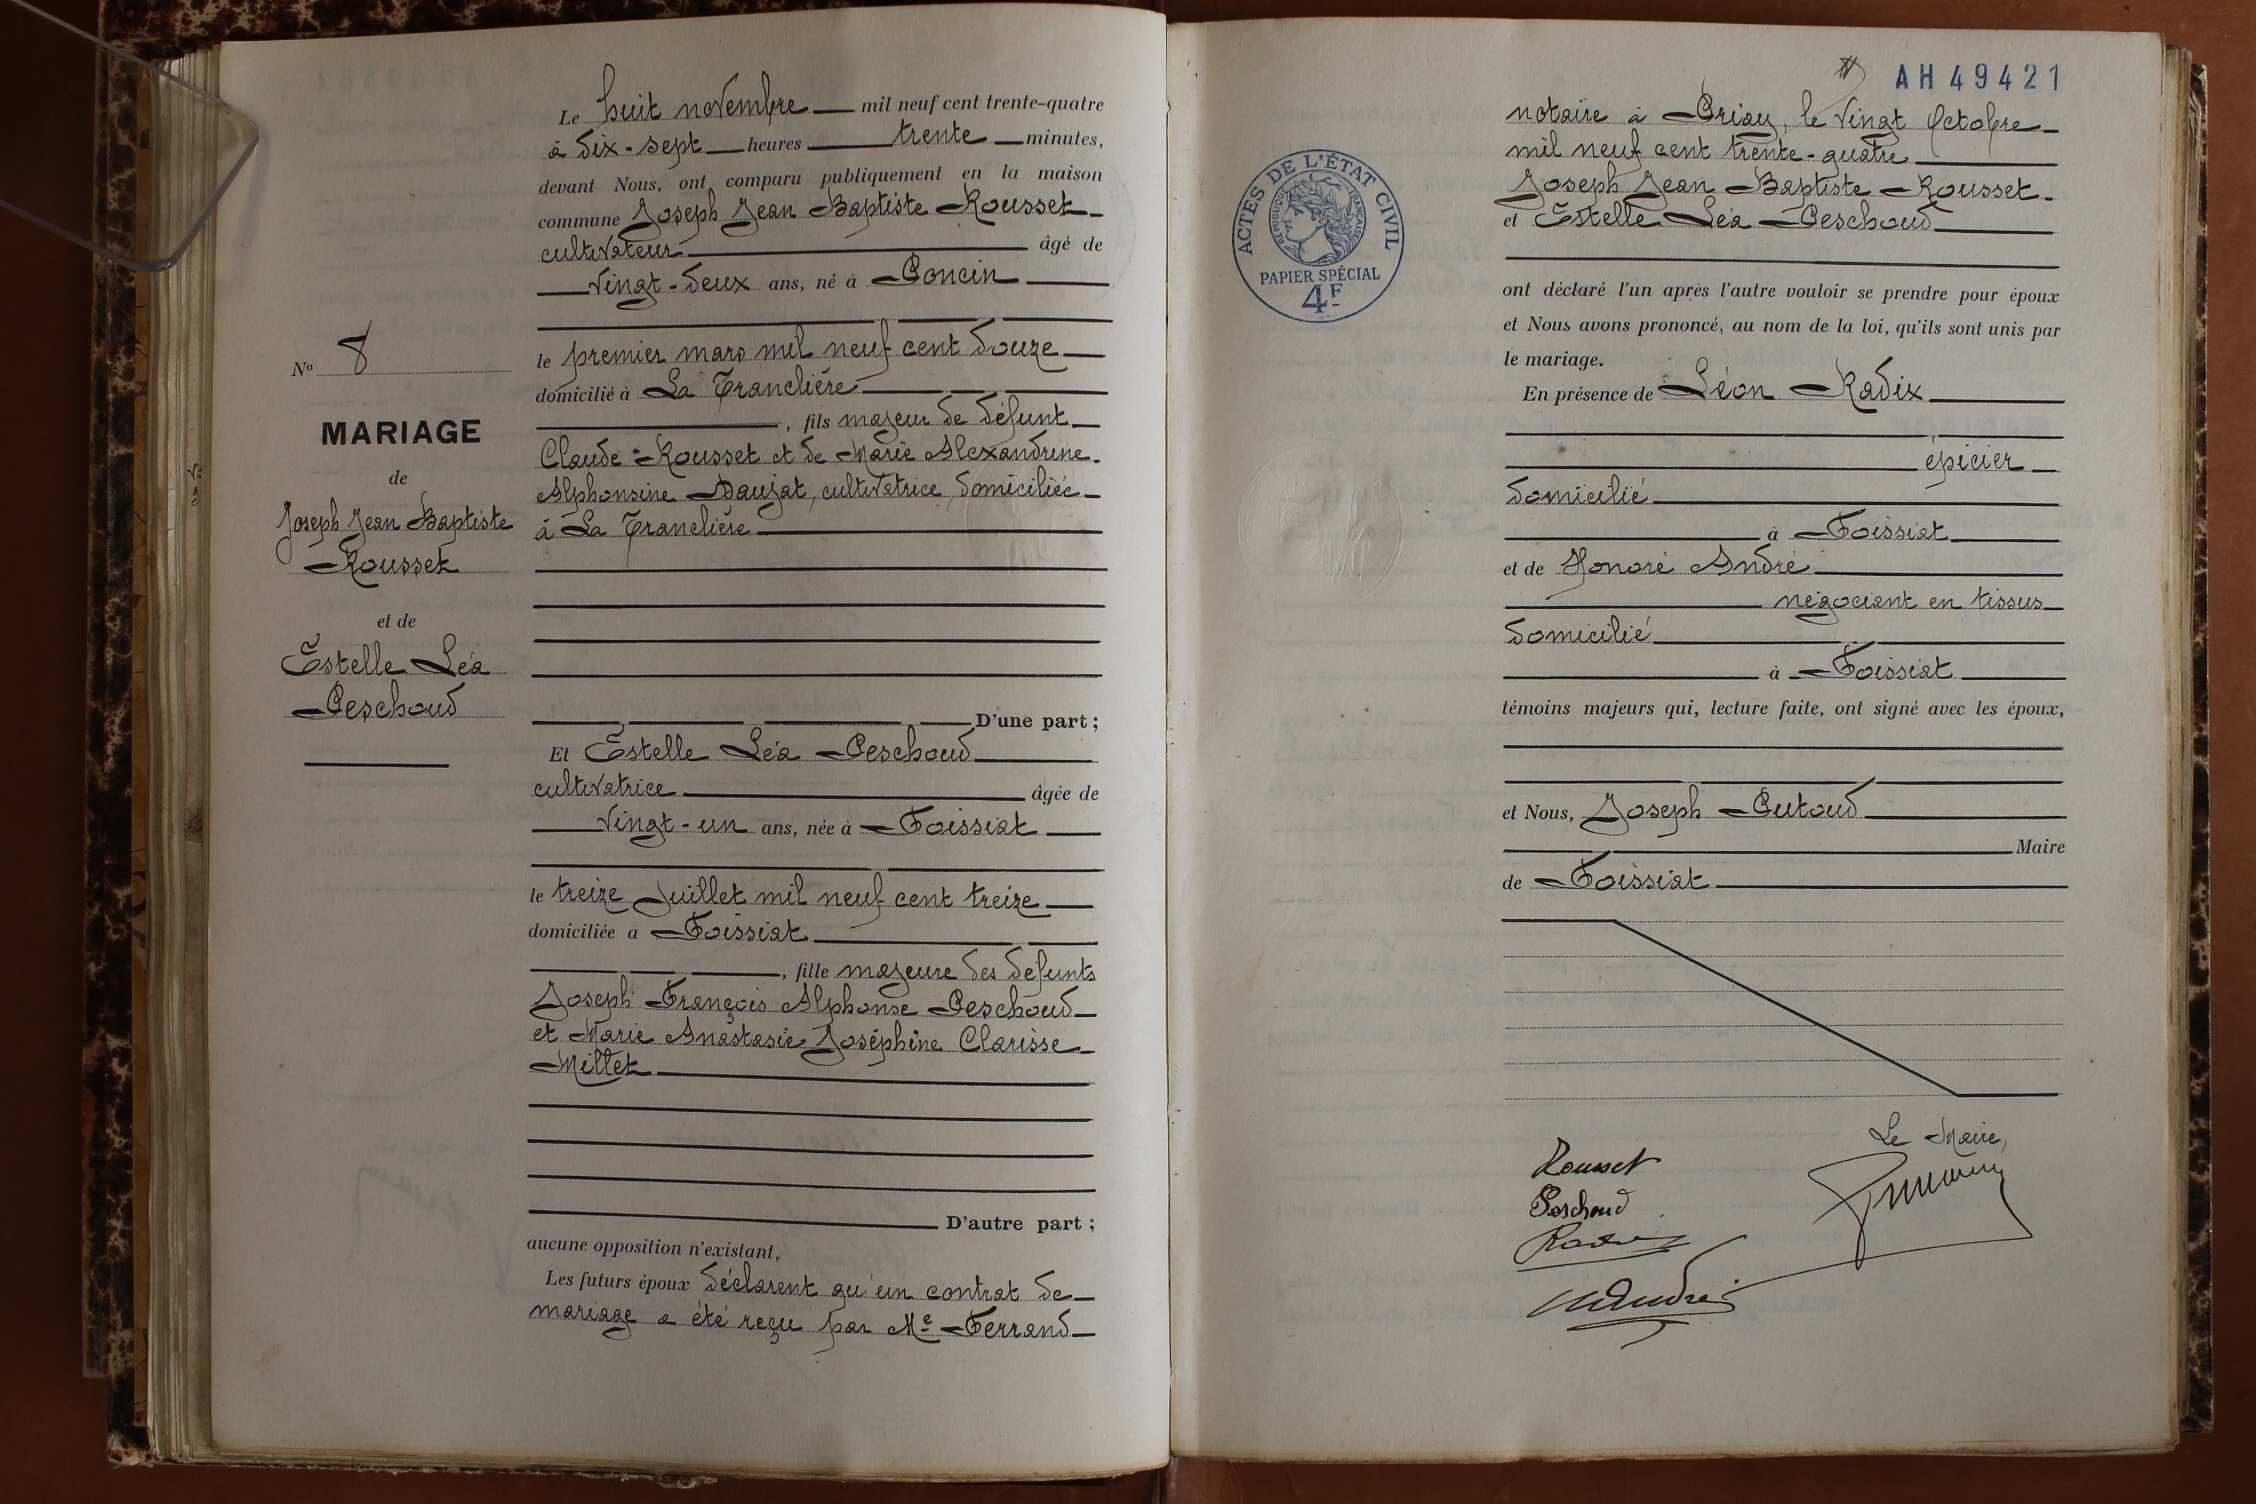 Le huit novembre mil neuf cent trente-quatre
à dix-sept heures trente minutes,
devant Nous, ont comparu publiquement en la maison
commune Joseph Jean Baptiste Rousset
cultivateur âgé de
vingt-deux ans, né à Poncin
le premier mars mil neuf cent douze
domicilié à La Tranclière
, fils majeur de défunt
Claude Rousset et de Marie Alexandrine
Alphonsine Daujat, cultivatrice, domiciliée
à La Tranclière
D'une part ;
Et Estelle Léa Peschoud
cultivatrice âgée de
vingt-un ans, née à Foissiat
le treize Juillet mil neuf cent treize
domiciliée à Foissiat
, fille majeure des défunts
Joseph François Alphonse Peschoud
et Marie Anastasie Joséphine Clarisse
Millet
D'autre part ;
aucune opposition n'existant,
Les futurs époux déclarent qu'un contrat de
mariage a été reçu par Me Ferrand
No 8
MARIAGE
de
Joseph Jean Baptiste
Rousset
et de
Estelle Léa
Peschoud
AH 49421
ACTES DE L'ÉTAT CIVIL
RÉPUBLIQUE FRANÇAISE
PAPIER SPÉCIAL
4F
notaire à Priay, le vingt Octobre
mil neuf cent trente-quatre
Joseph Jean Baptiste Rousset
et Estelle Léa Peschoud
ont déclaré l'un après l'autre vouloir se prendre pour époux
et Nous avons prononcé, au nom de la loi, qu'ils sont unis par
le mariage.
En présence de Léon Radix
épicier
domicilié
à Foissiat
et de Honoré André
négociant en tissus
domicilié
à Foissiat
témoins majeurs qui, lecture faite, ont signé avec les époux,
et Nous, Joseph Putoud
Maire
de Foissiat
Le Maire,
Rousset
Peschoud
Radix
André